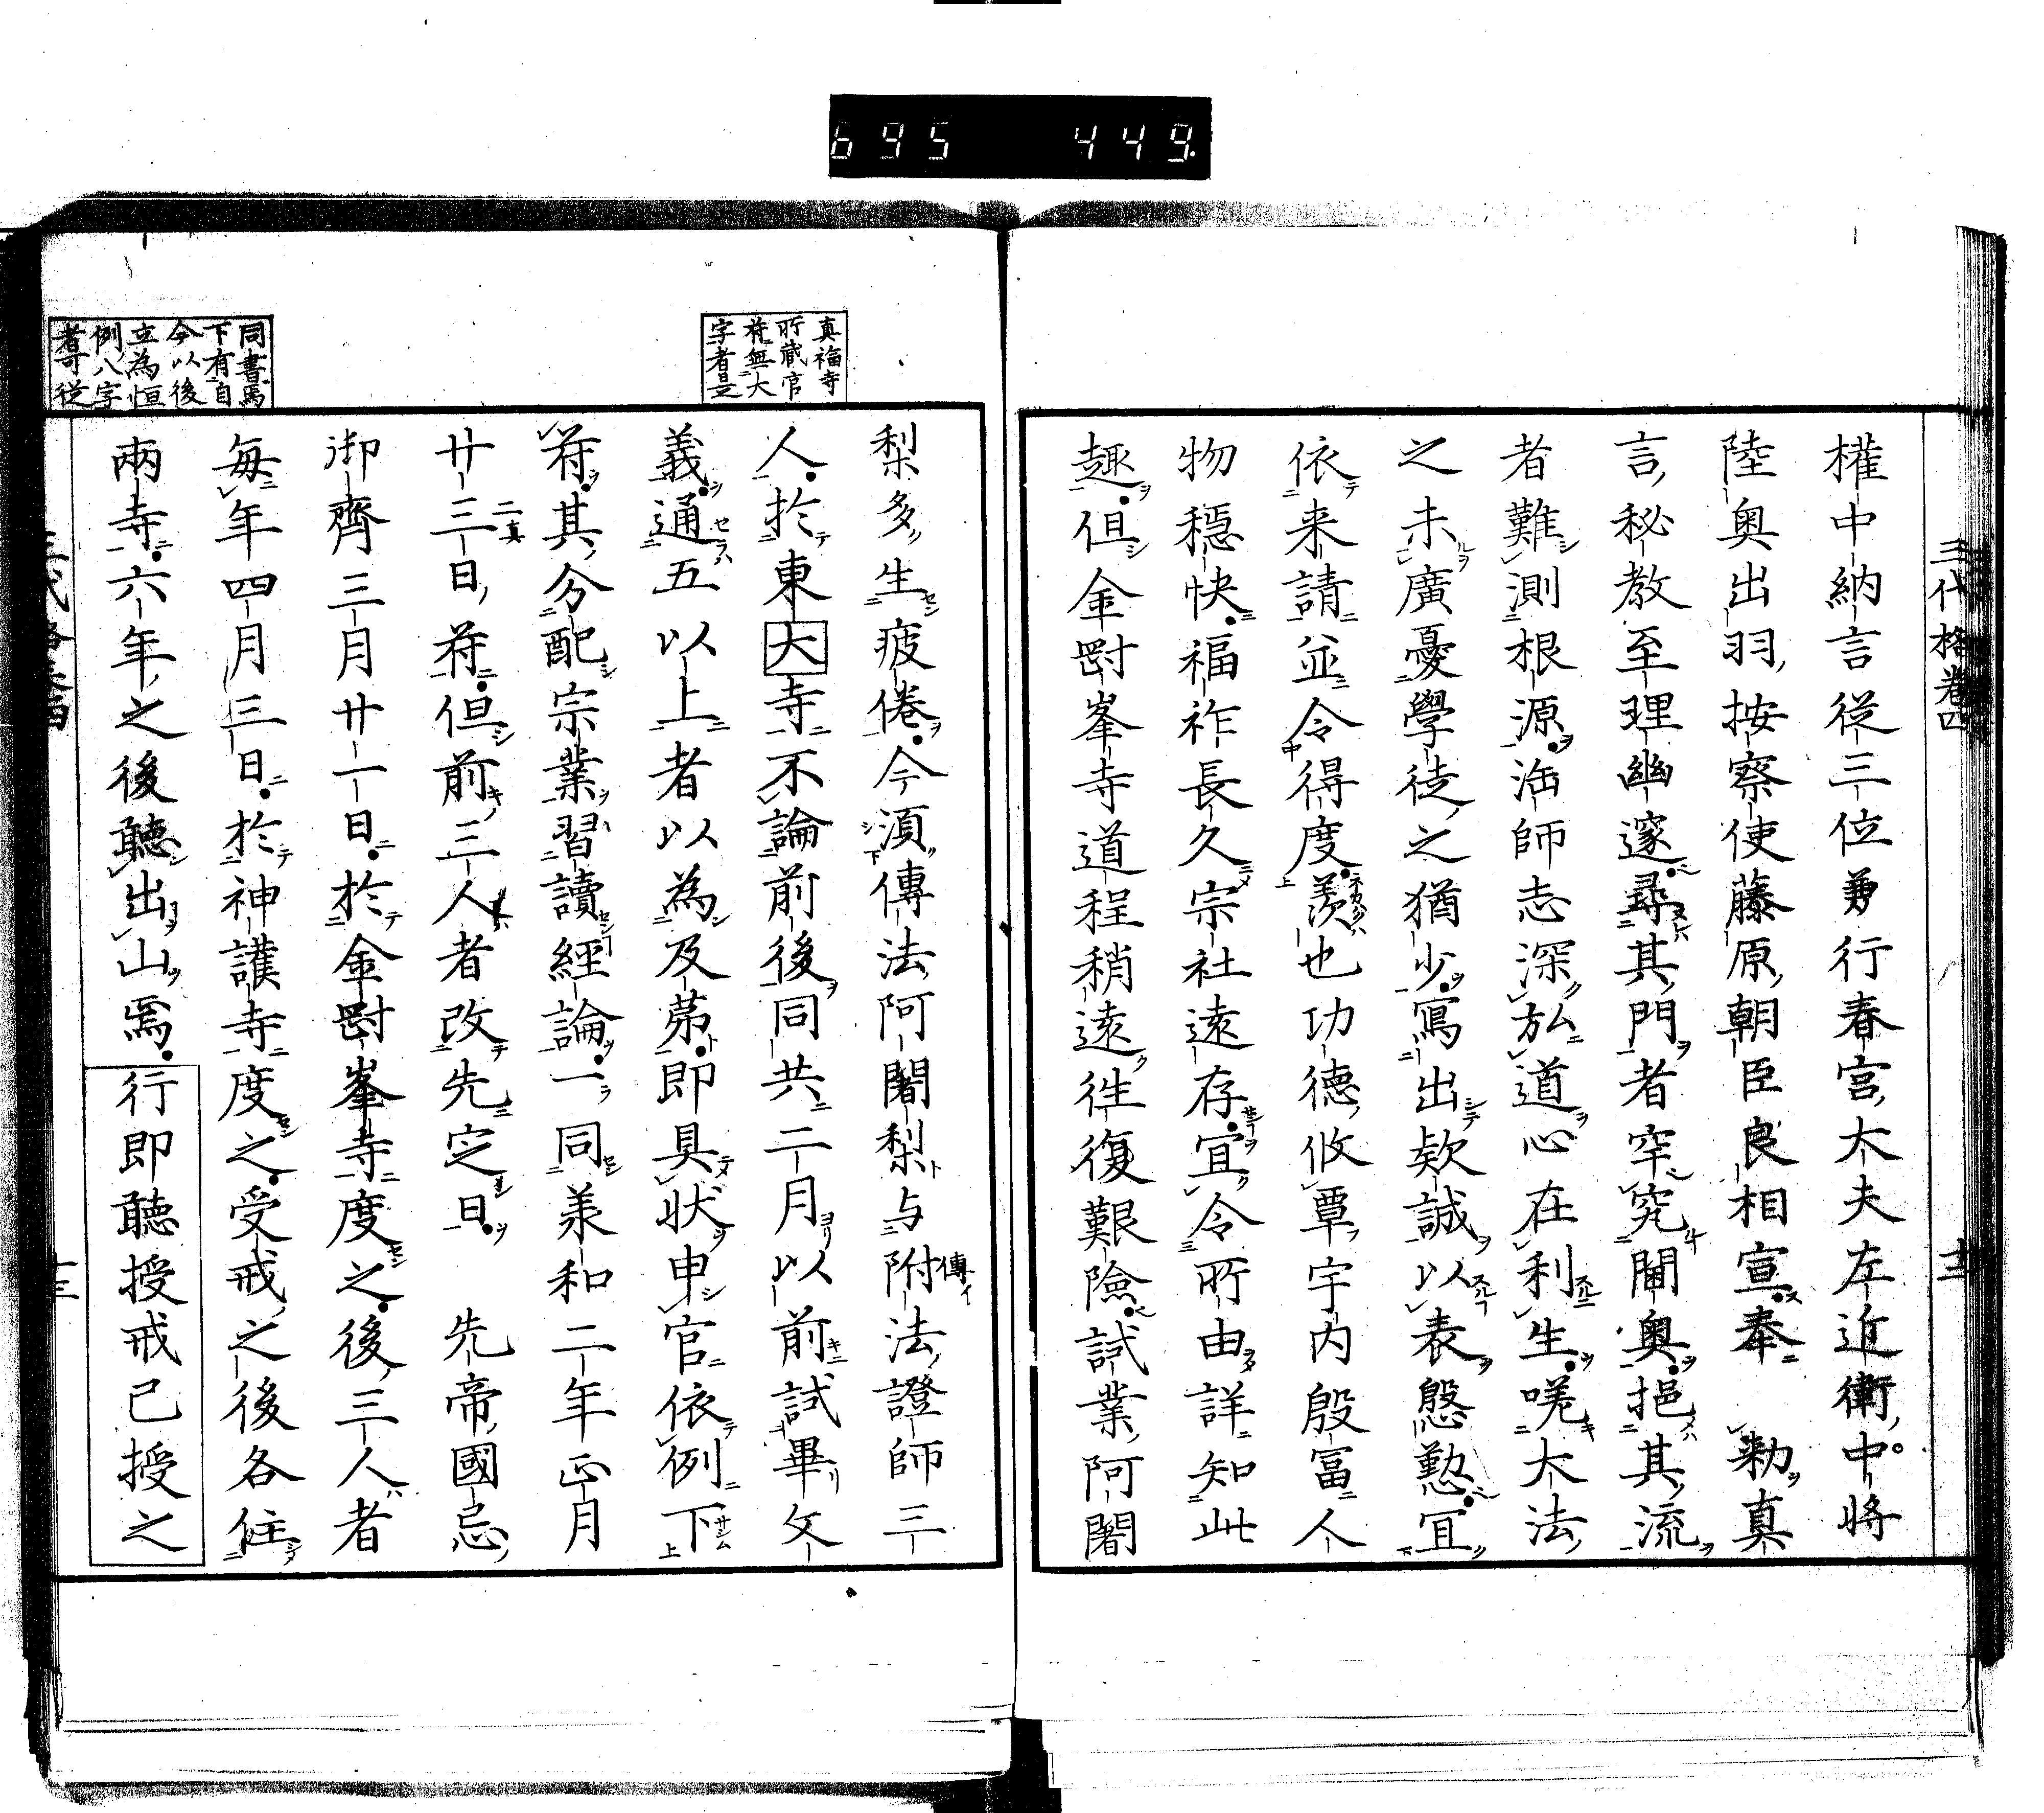 695 449.
三代格卷四
十三
權中納言從三位兼行春宮大夫左近衛中將
陸奥出羽按察使藤原朝臣良相宣奉 勅真
言秘教至理幽邃尋其門者罕究閫奥挹其流
者難測根源法師志深弘道心在利生嗟大法
之未廣憂學徒之猶少寫出欵誠以表慇懃宜
依来請並令得度羨也功德攸覃宇内殷富人
物穩快福祚長久宗社遠存宜令所由詳知此
趣但金剛峯寺道程稍遠往復艱險試業阿闍
真福寺
所藏官
符無大
字者是
梨多生疲倦今須傳法阿闍梨与附法證師三
人於東大寺不論前後同共二月以前試畢文
義通五以上者以為及苐即具状申官依例下
符其分配宗業習讀經論一同羕和二年正月
廿三日符但前三人者改先定日 先帝國忌
御齊三月廿一日於金剛峯寺度之後三人者
每年四月三日於神護寺度之受戒之後各住
兩寺六年之後聽出山焉行即聽授戒已授之
同書焉
下有自
今以後
立為恒
例八字
者可從